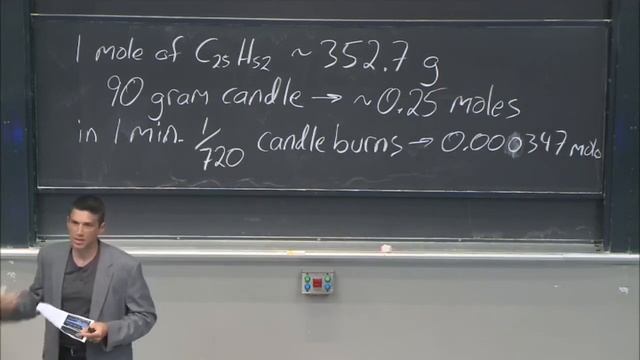 1 mole of C₂₅H₅₂ ~ 352.7 g
90 gram candle → ~0.25 moles
in 1 min. 1/720 candle burns → 0.000347 mole